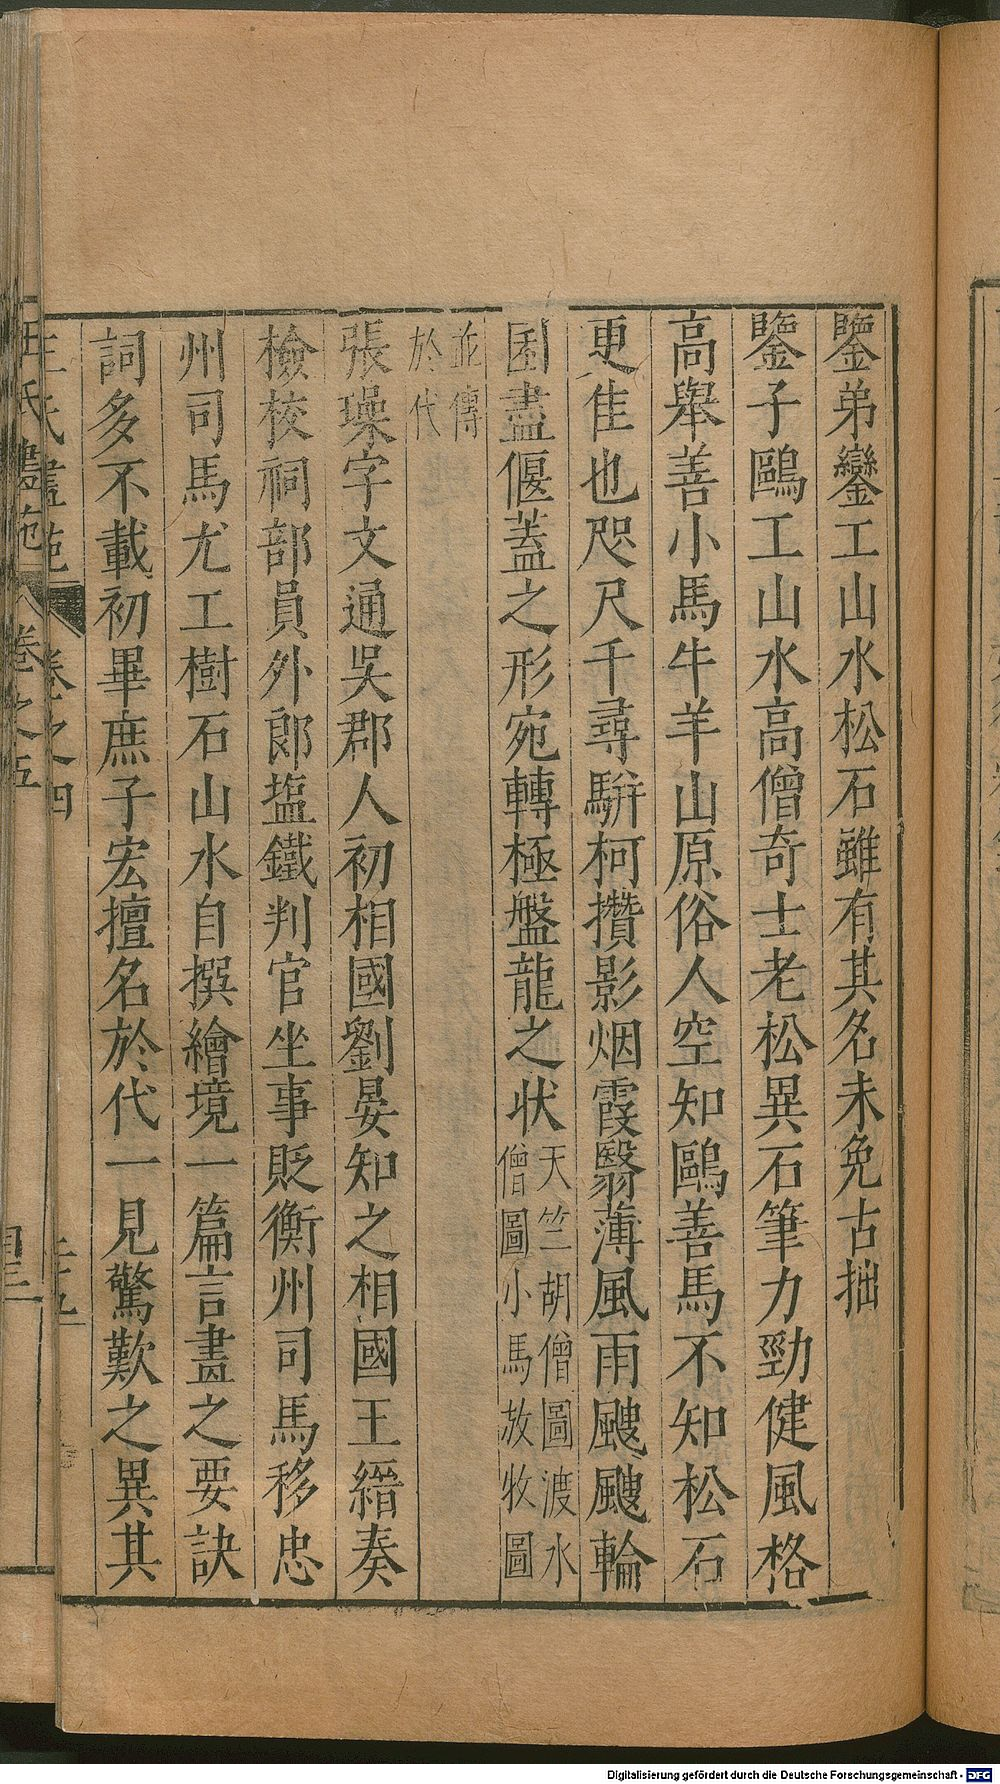 鑒弟鑾工山水松石雖有其名未免古拙
鑒子鷗工山水高僧奇士老松異石筆力勁健風格
高舉善小馬牛羊山原俗人空知鷗善馬不知松石
更佳也咫尺千尋駢柯攢影烟霞翳薄風雨颼颼輪
囷盡偃蓋之形宛轉極盤龍之状天竺胡僧圖渡水
僧圖小馬放牧圖
並傳
於代
張璪字文通吳郡人初相國劉晏知之相國王縉奏
檢校祠部員外郎塩鐵判官坐事貶衡州司馬移忠
州司馬尤工樹石山水自撰繪境一篇言畫之要訣
詞多不載初畢庶子宏擅名於代一見驚歎之異其
王氏畫苑 卷之四
王氏畫苑 卷之五
Digitalisierung gefördert durch die Deutsche Forschungsgemeinschaft - DFG